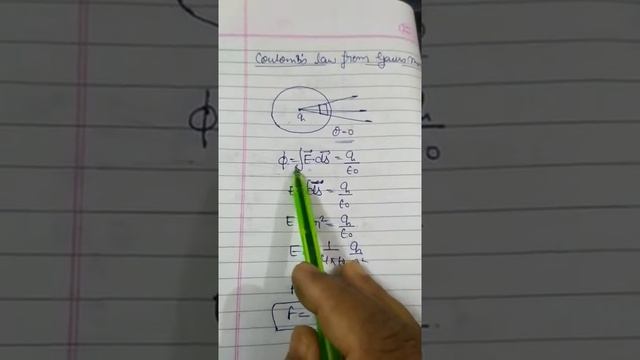 Coulomb's law from Gauss
q
θ=0
ϕ=∫E⃗·ds⃗=q/ε0
ds⃗=q/ε0
E r²=q/ε0
E 1/4πε0 q/r²
F=